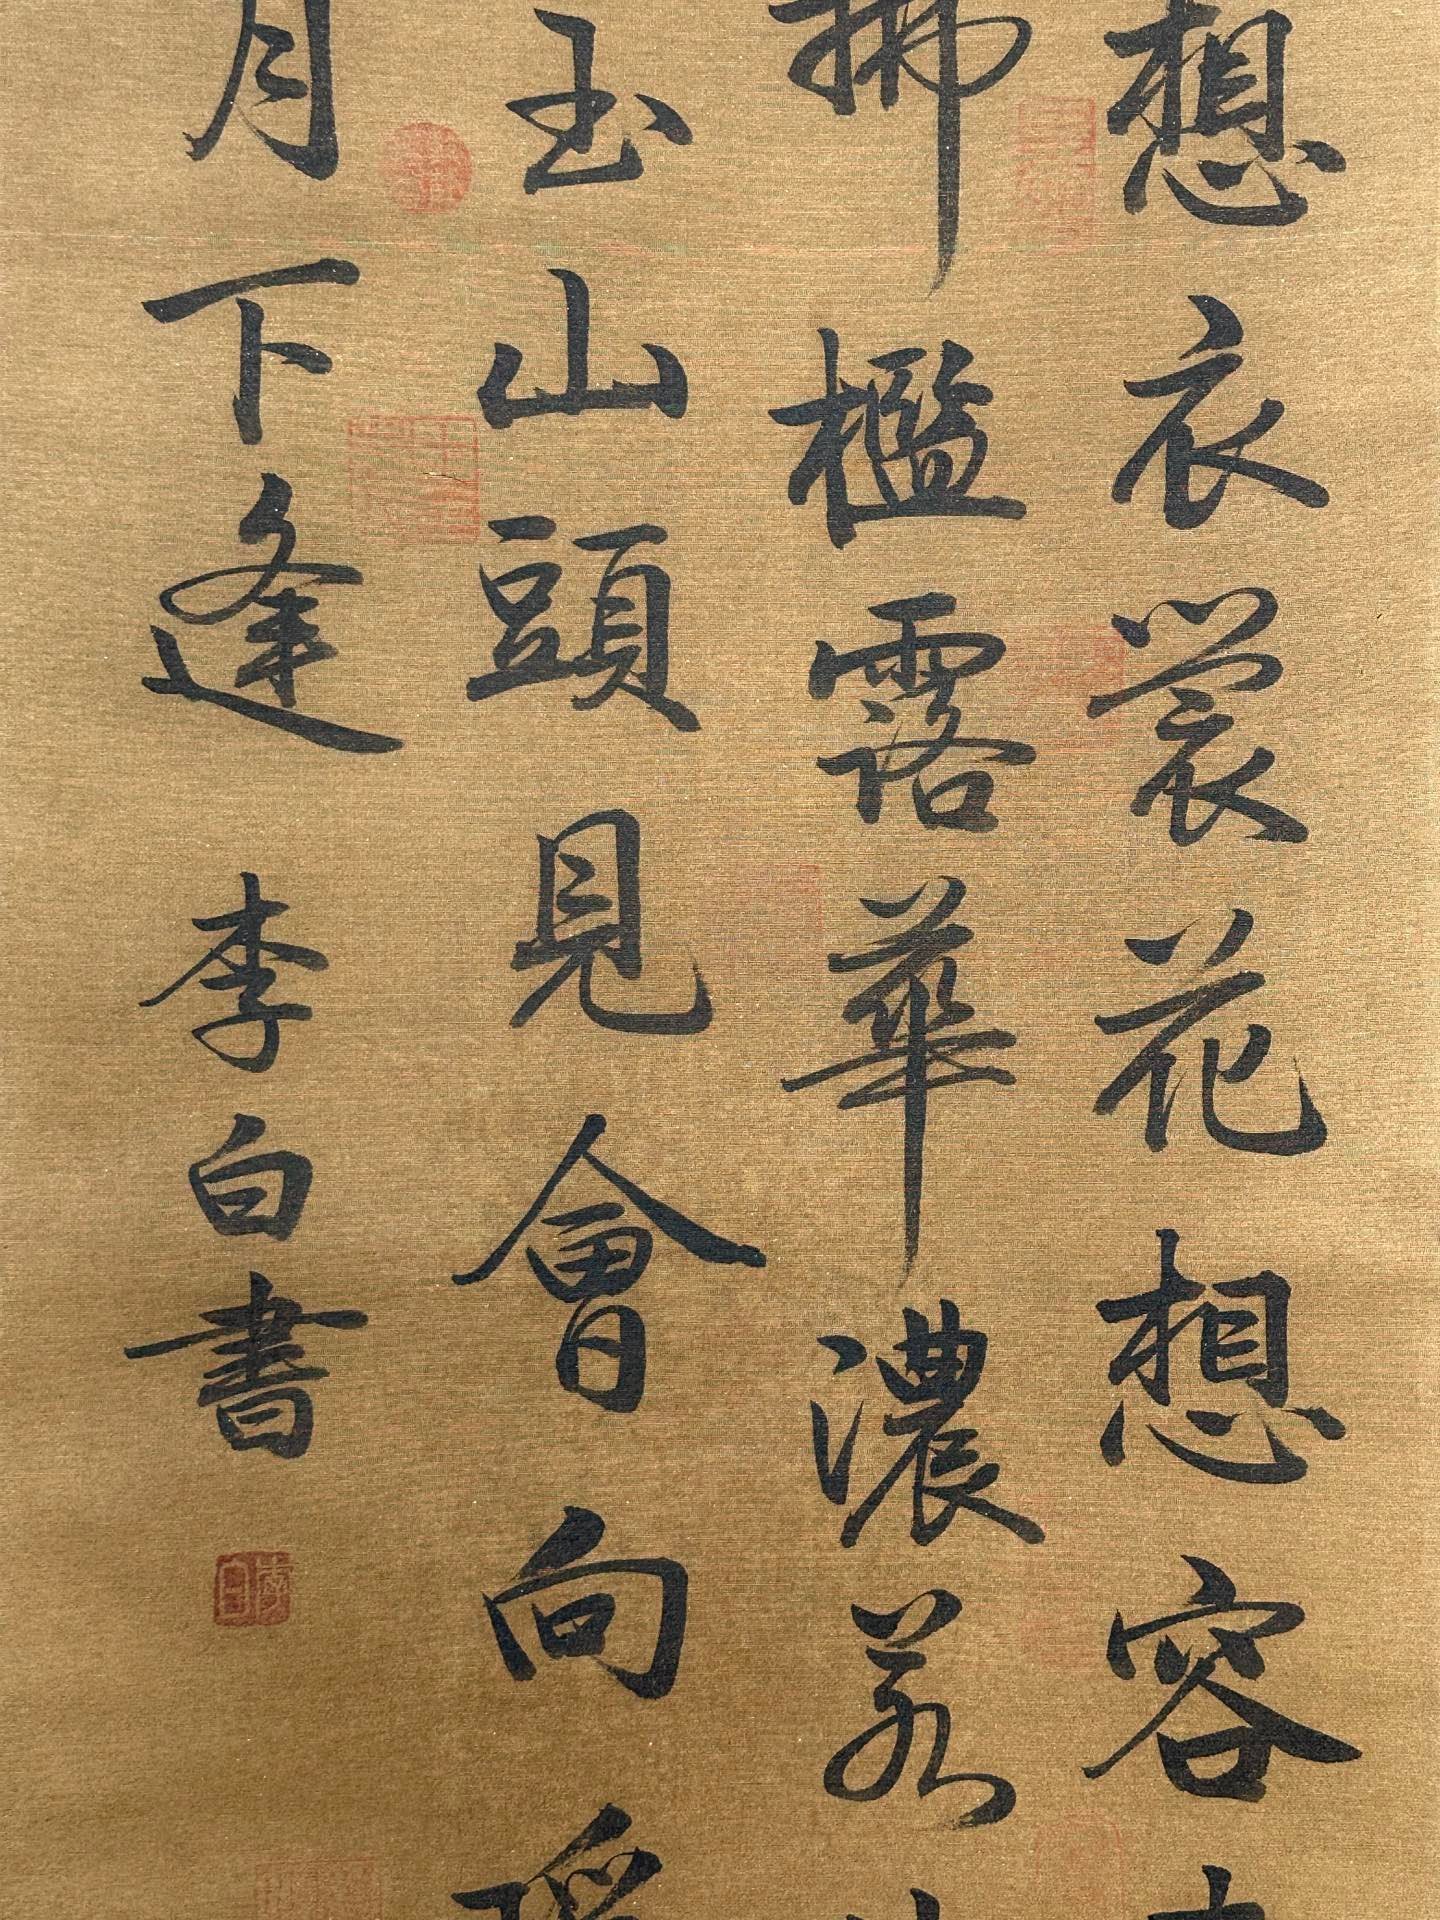 想衣裳花想容
拂檻露華濃若
玉山頭見會向瑤
月下逢 李白書
李白